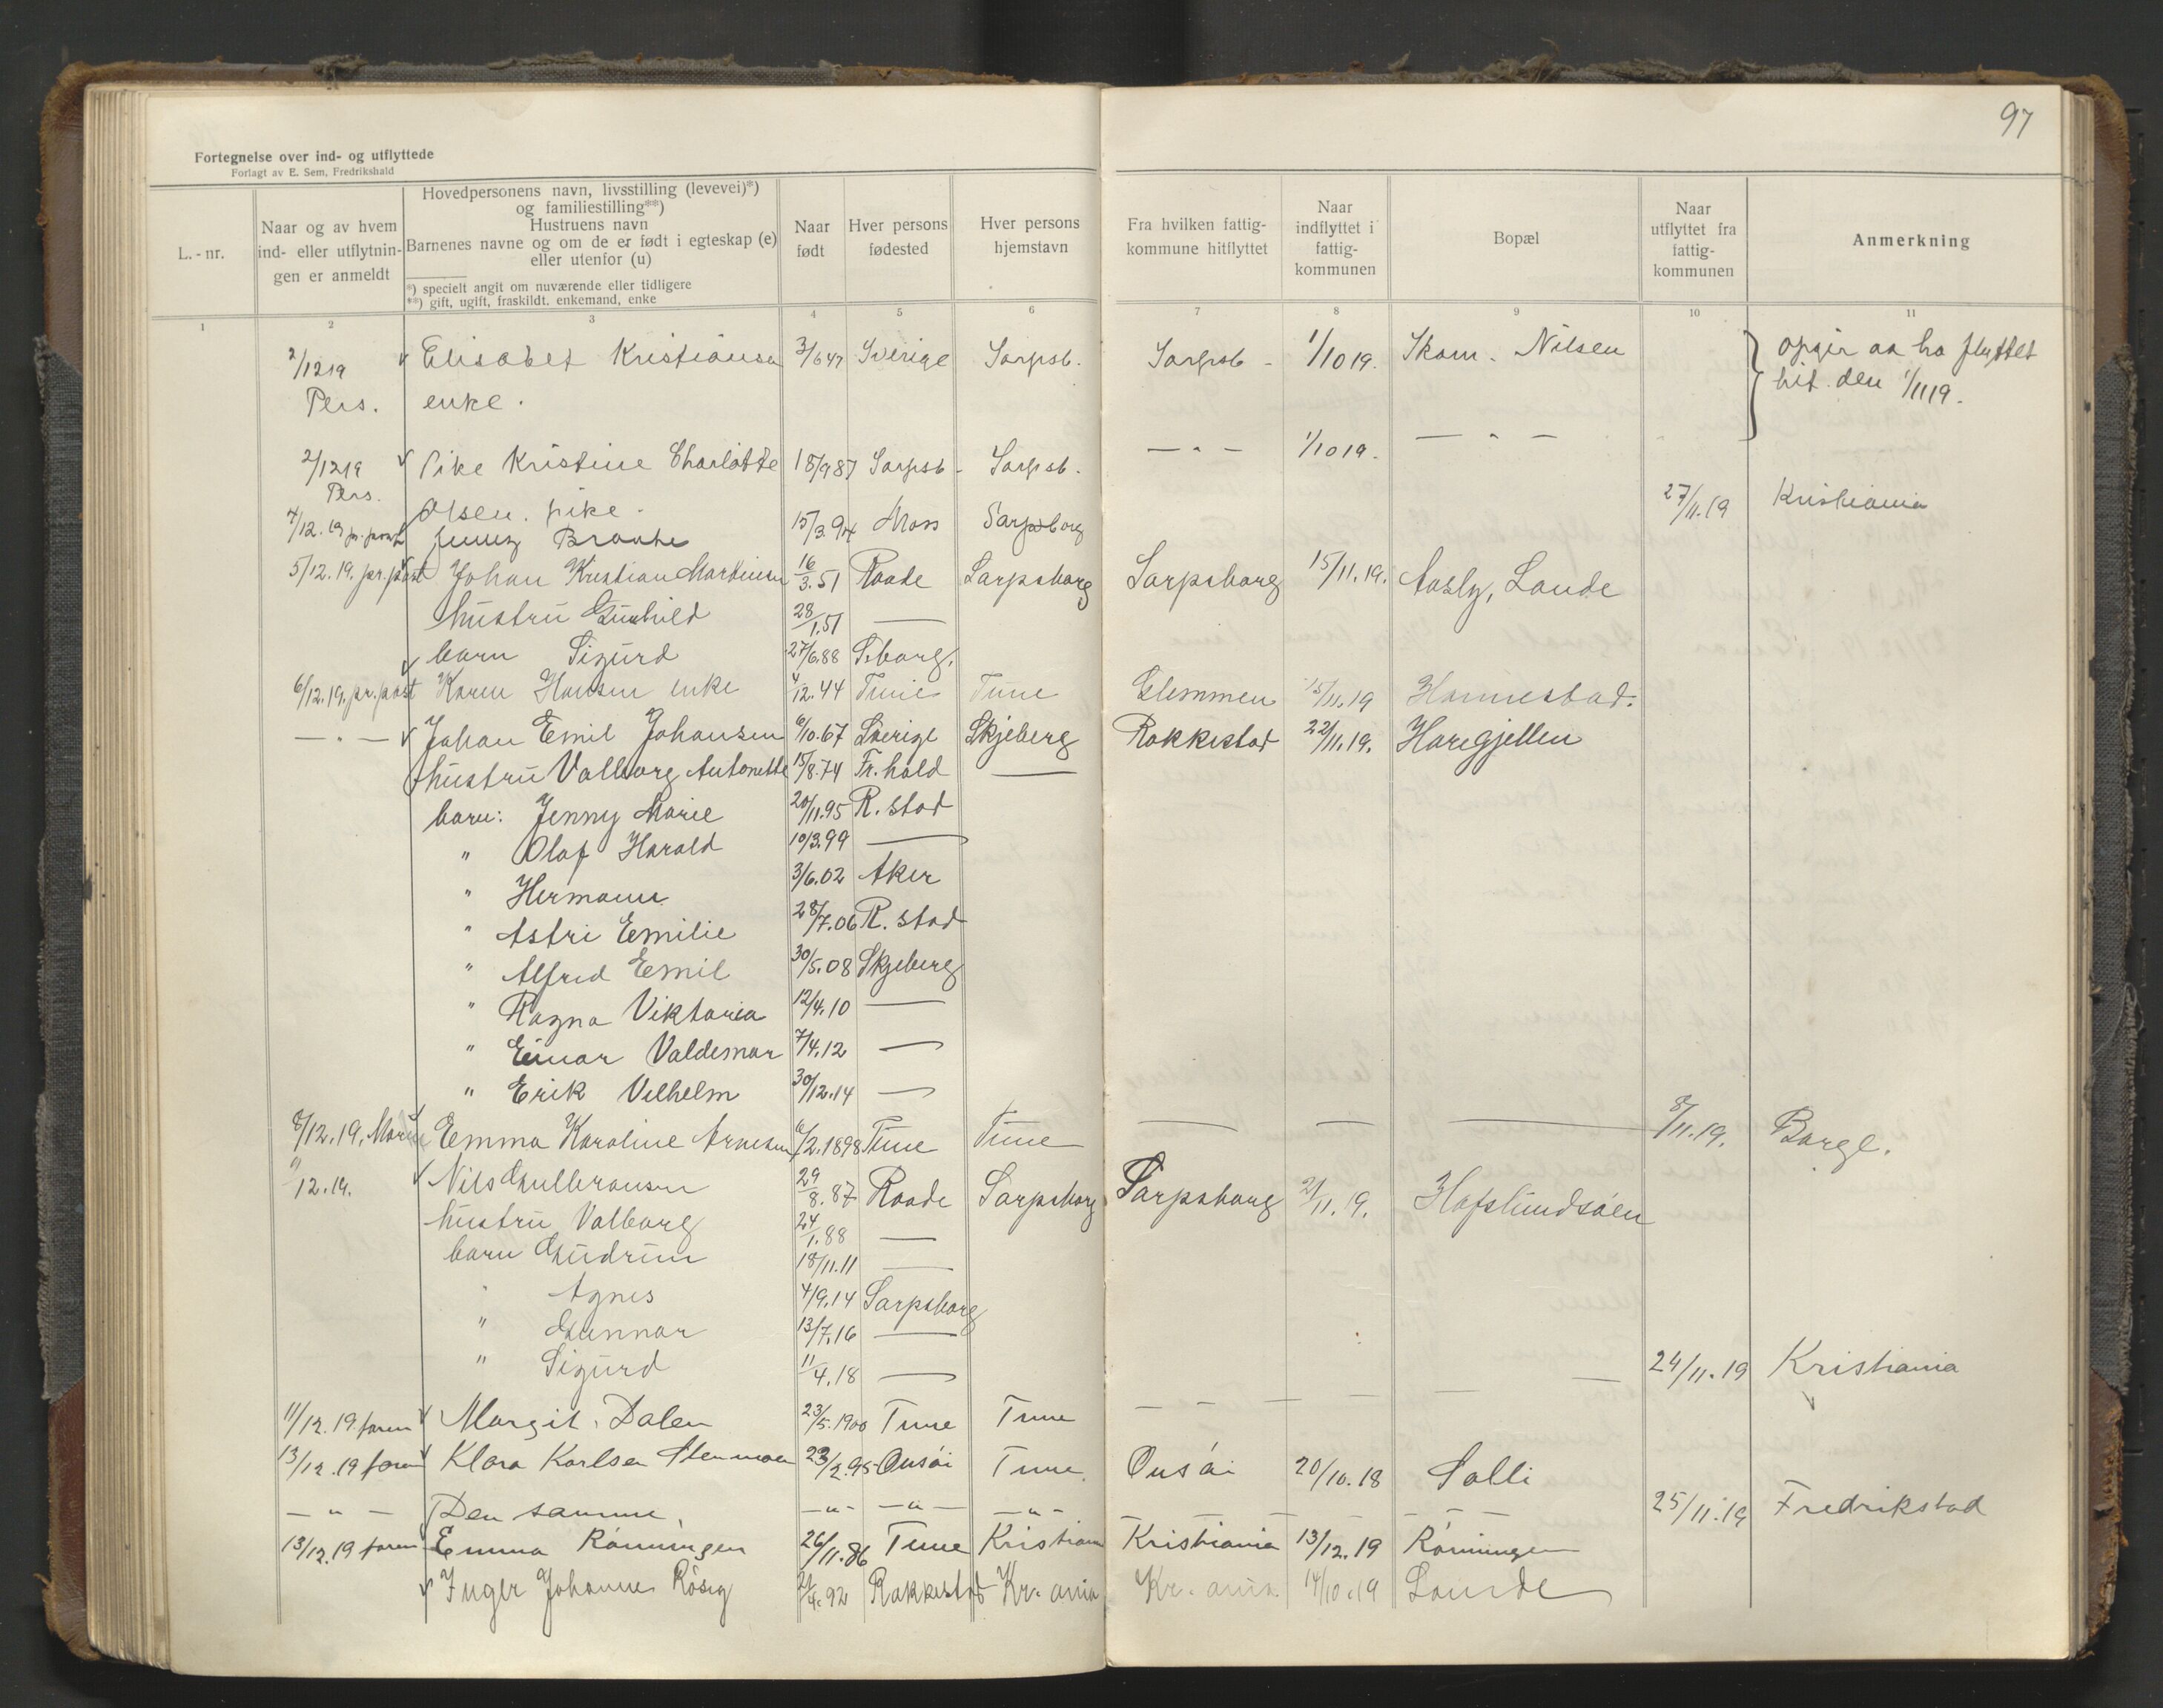 97
Fortegnelse over ind- og utflyttede
Forlagt av E. Sem, Fredrikshald
L.-nr. Naar og av hvem ind- eller utflytnin-gen er anmeldt Hovedpersonens navn, livsstilling (levevei)*) og familiestilling**) Hustruens navn Barnenes navne og om de er født i egteskap (e) eller utenfor (u) *) specielt angit om nuværende eller tidligere **) gift, ugift, fraskildt, enkemand, enke Naar født Hver persons fødested Hver persons hjemstavn Fra hvilken fattig-kommune hitflyttet Naar indflyttet i fattig-kommunen Bopæl Naar utflyttet fra fattig-kommunen Anmerkning
1 2 3 4 5 6 7 8 9 10 11
2/12 19 Elisabet Kristiansen 3/6 47 Sverige Sarpsb. Sarpsb - 1/10 19. Skom. Nilsen opgir aa ha flyttet
Pers. enke. hit den 1/11 19.
2/12 19 Pike Kristine Charlotte 18/9 87 Sarpsb - Sarpsb. — " — 1/10 19. — " —
Pers. Olsen. pike.
4/12.19 pr. post Jenny Braathe 15/3.94 Moss Sarpsborg 27/11.19 Kristiania
5/12.19. pr. post Johan Kristian Martinsen 16/3.51 Raade Sarpsborg Sarpsborg 15/11.19. Aasly, Lande
hustru Gunhild 28/1.51 —
barn Sigurd 27/6.88 S.borg.
6/12.19. pr. post Karen Hansen enke 4/12.44 Tune Tune Glemmen 15/11.19 Hannestad.
— " — Johan Emil Johansen 6/10.67 Sverige Skjeberg Rakkestad 22/11.19. Haregjellen
hustru Valborg Antonette 15/8.74 Fr.hald —
barn: Jenny Marie 20/11.95 R.stad
" Olaf Harald 10/3.99 —
" Hermann 3/6.02 Aker
" Astri Emilie 28/7.06 R.stad
" Alfred Emil 30/5.08 Skjeberg
" Ragna Viktoria 12/4.10 —
" Einar Valdemar 7/4.12 —
" Erik Vilhelm 30/12.14 —
8/12.19, Emma Karoline Arnesen 6/2.1898 Tune Tune — — — 8/11.19. Borge.
9/12.19. Nils Gulbransen 29/8.87 Raade Sarpsborg Sarpsborg 21/11.19. Hafslundsøen
hustru Valborg 24/1.88 —
barn Gudrun 18/11.11 —
" Agnes 4/9.14 Sarpsborg
" Gunnar 13/7.16 —
" Sigurd 11/4.18 —
11/12.19. foren Margit Dalen 23/5.1900 Tune Tune — — — — — — 24/11.19 Kristiania
13/12.19 foren Klara Karlsen Stenmoen 23/2.95 Onsøi Tune. Onsøi 20/10.18 Solli
— " — Den samme. — " — — " — — " — — — — — — 25/11.19 Fredrikstad
13/12.19 foren Emma Rønningen 26/11.86 Tune Kristiania Kristiania 13/12.19 Rønningen
Inger Johanne Røsig 21/4.92 Rakkestad Kr.ania Kr.ania 14/10.19 Lande